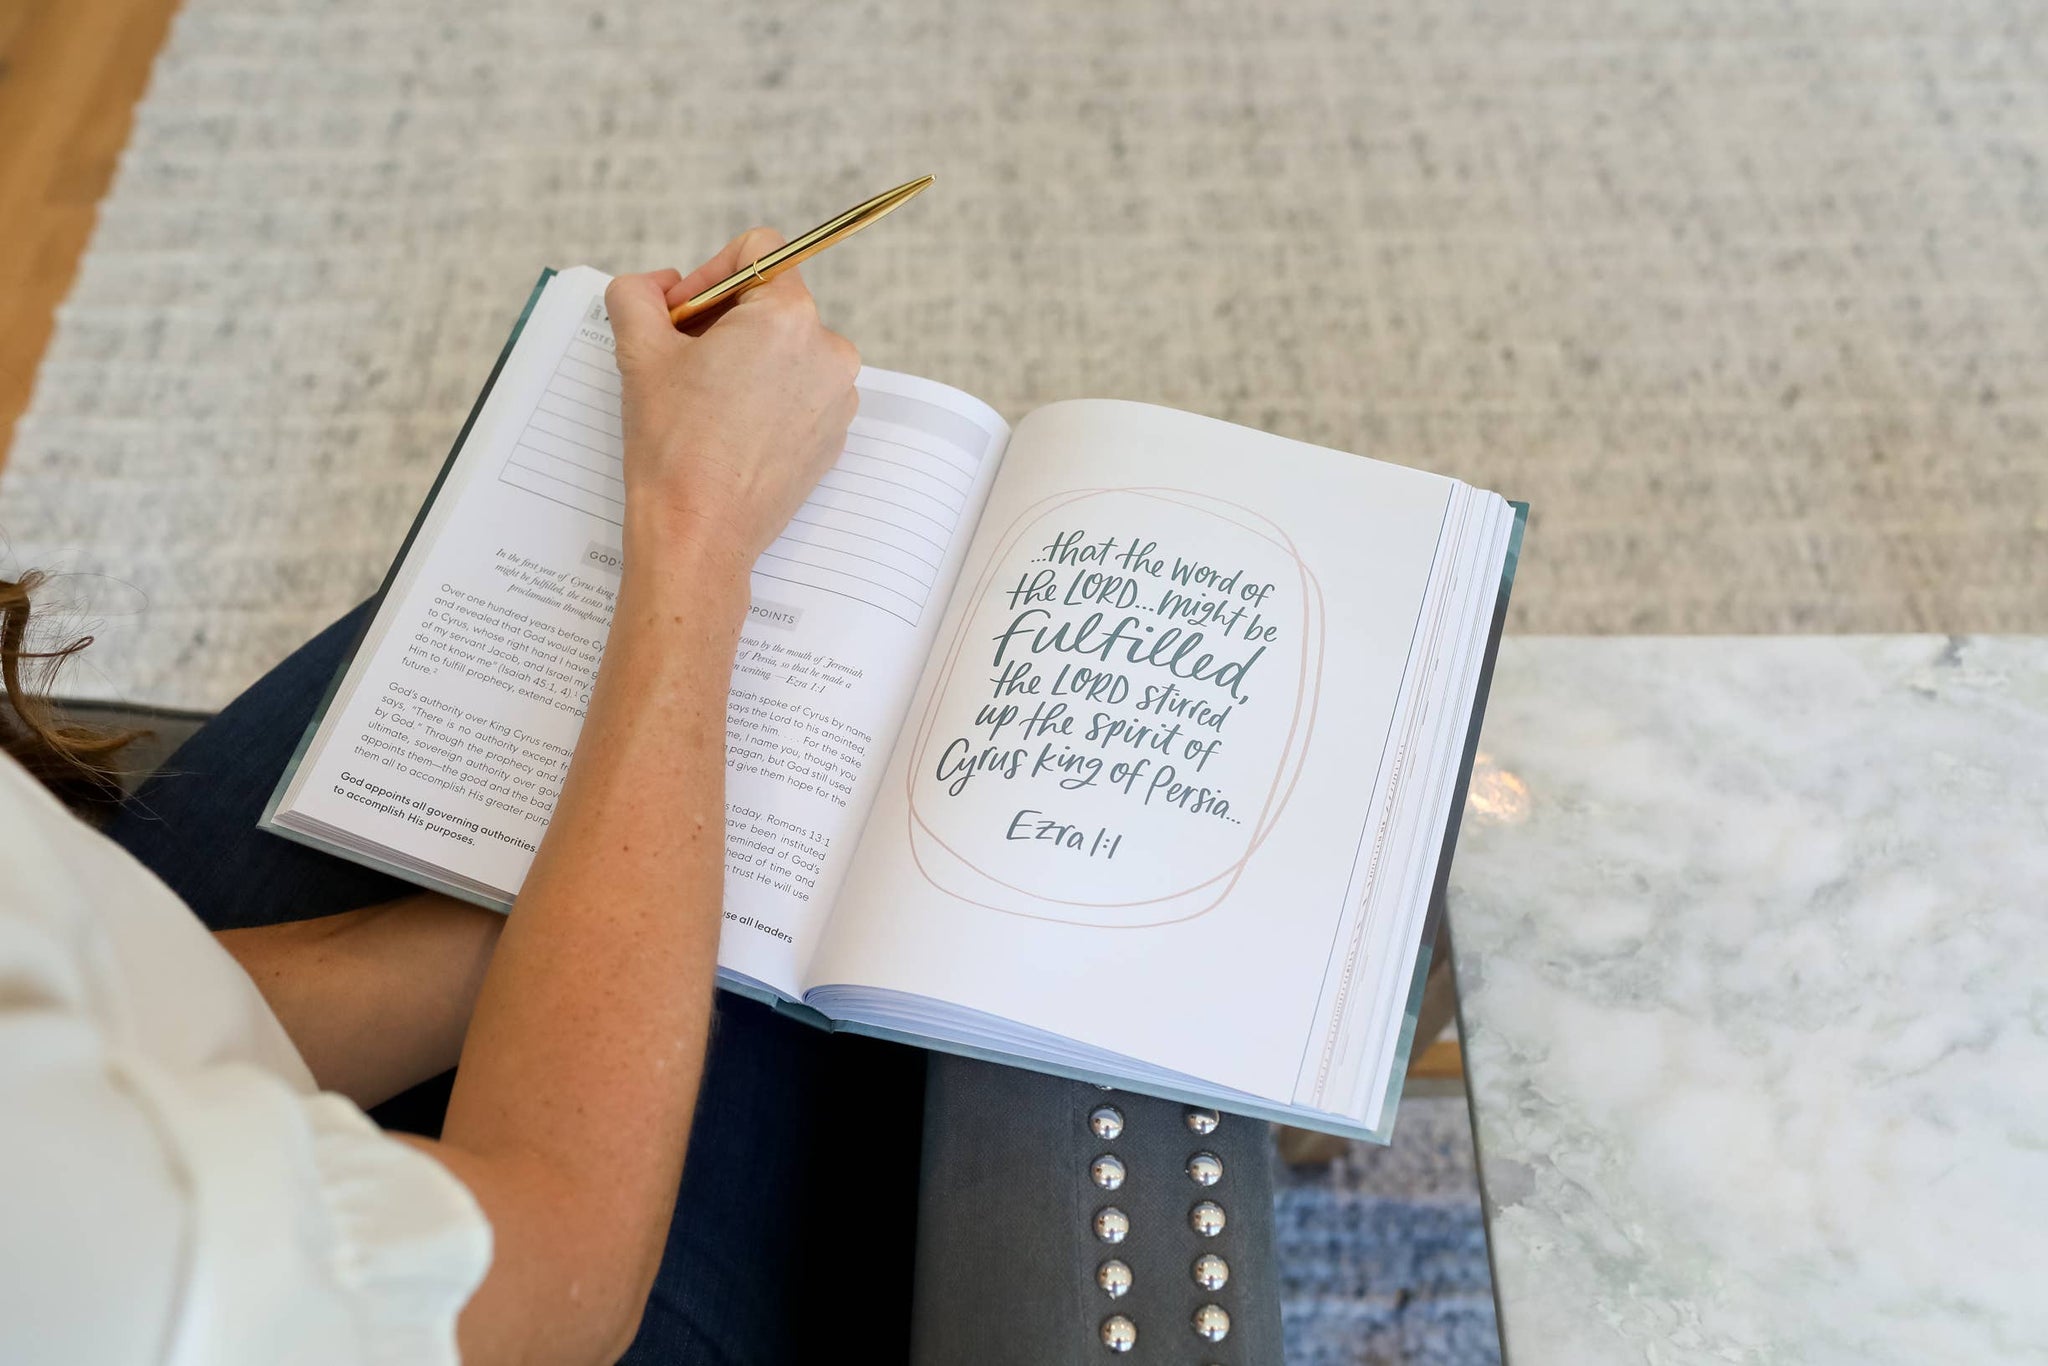 NOTES
GOD'S
PPOINTS
In the first year of Cyrus king
LORD by the mouth of Jeremiah
might be fulfilled, the LORD
of Persia, so that he made a
proclamation throughout
writing. —Ezra 1:1
Over one hundred years before
Isaiah spoke of Cyrus by name
and revealed that God would use
says the Lord to his anointed,
to Cyrus, whose right hand I have
before him. . . . For the sake
of my servant Jacob, and Israel my
I name you, though you
do not know me" (Isaiah 45:1, 4).¹
pagan, but God still used
Him to fulfill prophecy, extend
give them hope for the
future.²
God's authority over King Cyrus
today. Romans 13:1
says, "There is no authority except
have been instituted
by God." Through the prophecy and
reminded of God's
ultimate, sovereign authority over
head of time and
appoints them—the good and the bad,
trust He will use
them all to accomplish His greater
God appoints all governing authorities,
use all leaders
to accomplish His purposes.
...that the word of
the LORD...might be
fulfilled,
the LORD stirred
up the spirit of
Cyrus king of Persia...
Ezra 1:1